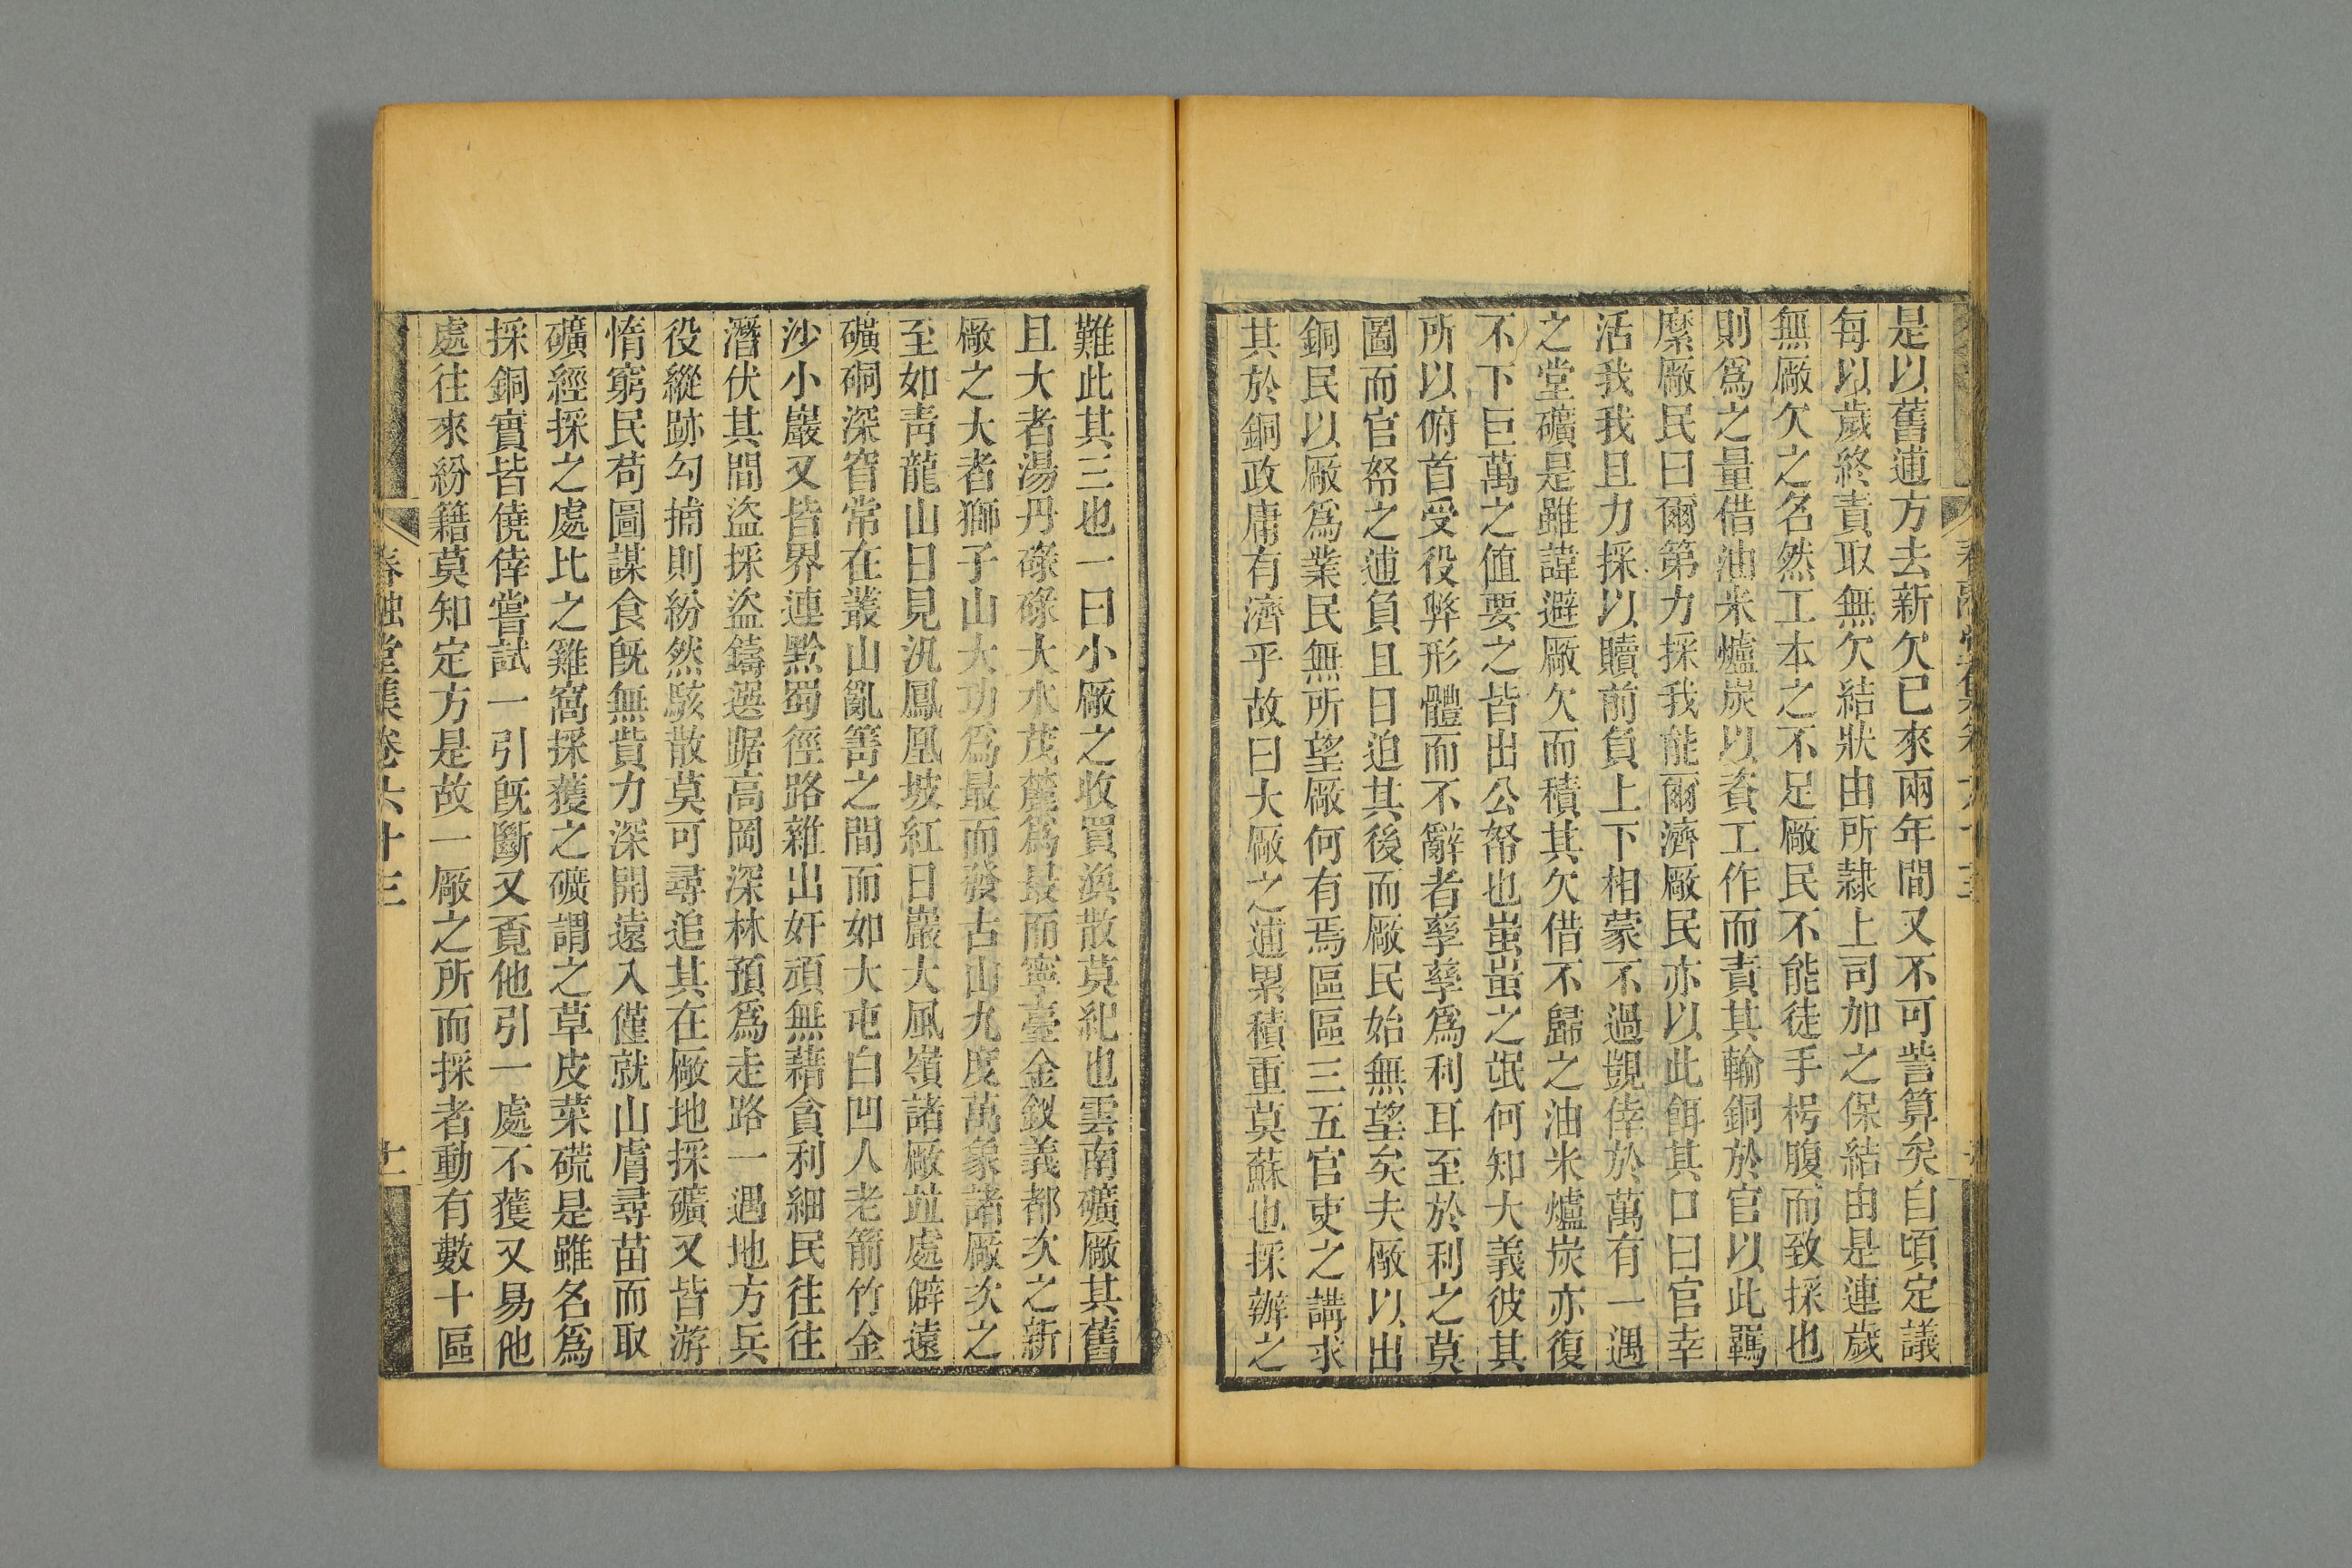 是以舊逋方去新欠已來兩年間又不可訾算矣自頃定議
每以歲終責取無欠結狀由所隷上司加之保結由是連歲
無厰欠之名然工本之不足厰民不能徒手枵腹而致採也
則爲之量借油米爐炭以資工作而責其輸銅於官以此羈
縻厰民曰爾第力採我能爾濟厰民亦以此餌其口曰官幸
活我我且力採以贖前負上下相蒙不過覬倖於萬有一遇
之堂礦是雖諱避厰欠而積其欠借不歸之油米爐炭亦復
不下巨萬之値要之皆出公帑也蚩蚩之氓何知大義彼其
所以俯首受役弊形體而不辭者孳孳爲利耳至於利之莫
圖而官帑之逋負且日迫其後而厰民始無望矣夫厰以出
銅民以厰爲業民無所望厰何有焉區區三五官吏之講求
其於銅政庸有濟乎故曰大厰之逋累積重莫蘇也採辦之
難此其三也一曰小厰之收買渙散莫紀也雲南礦厰其舊
且大者湯丹碌碌大水茂麓爲最而寧臺金釵義都次之新
厰之大者獅子山大功爲最而發古山九度萬象諸厰次之
至如青龍山日見汛鳳凰坡紅日巖大風嶺諸厰竝處僻遠
礦硐深窅常在叢山亂箐之間而如大屯白凹人老箭竹金
沙小巖又皆界連黔蜀徑路雜出奸頑無藉貪利細民往往
潛伏其間盜採盜鑄選踞高岡深林預爲走路一遇地方兵
役縱跡勾捕則紛然駭散莫可尋追其在厰地採礦又皆游
惰窮民苟圖謀食旣無貲力深開遠入僅就山膚尋苗而取
礦經採之處比之雞窩採獲之礦謂之草皮菜䃃是雖名爲
採銅實皆僥倖嘗試一引旣斷又覔他引一處不獲又易他
處往來紛籍莫知定方是故一厰之所而採者動有數十區
春融堂集卷六十三
十一